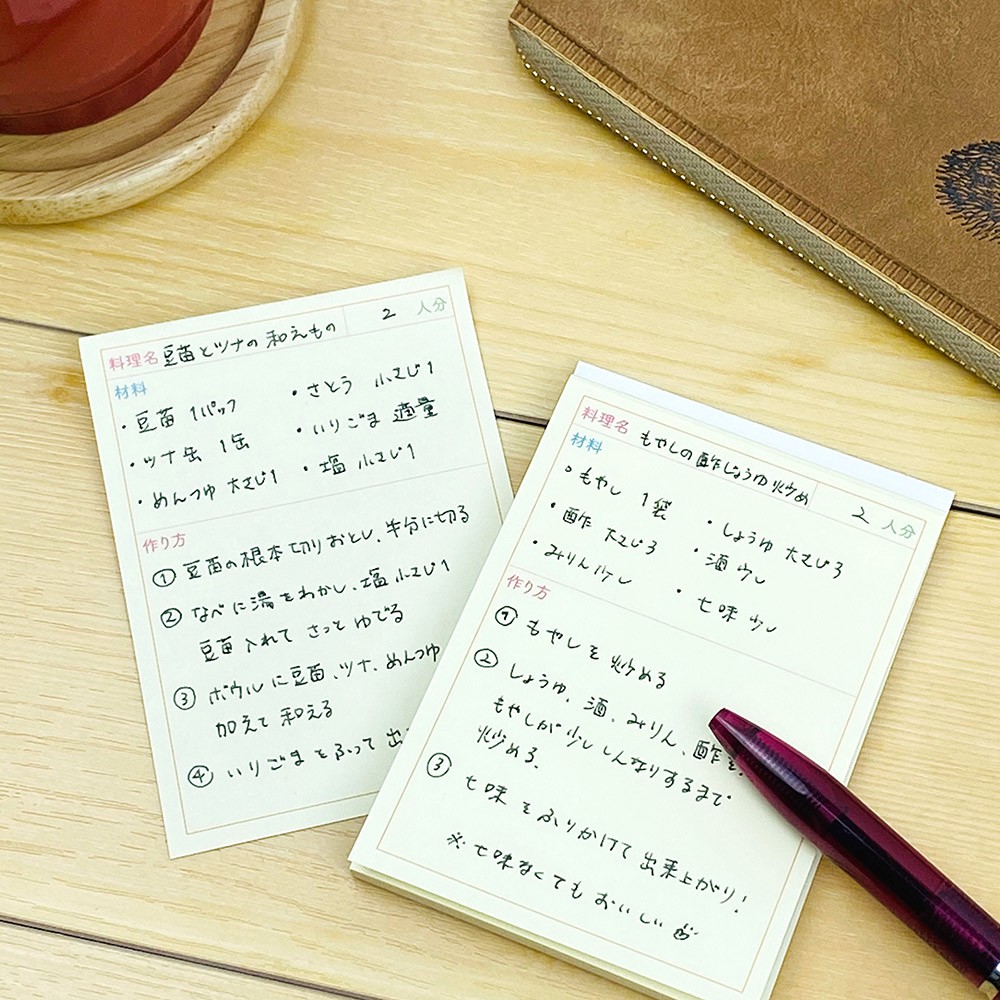 料理名 豆苗とツナの和えもの 2 人分
材料
・豆苗 1パック
・ツナ缶 1缶
・めんつゆ 大さじ1
・さとう 小さじ1
・いりごま 適量
・塩 小さじ1
作り方
① 豆苗の根本切りおとし、半分に切る
② なべに湯をわかし、塩小さじ1
豆苗入れて さっと ゆでる
③ ボウルに豆苗、ツナ、めんつゆ
加えて 和える
④ いりごまとふって 出
料理名 もやしの酢じょうゆ炒め 2 人分
材料
・もやし 1袋
・酢 大さじ3
・みりん少し
・しょうゆ 大さじ3
・酒 少し
・七味 少し
作り方
① もやしを 炒める
② しょうゆ、酒、みりん、酢を
もやしが少ししんなりするまで
炒める。
③ 七味をふりかけて 出来上がり!
※七味なくてもおいしい